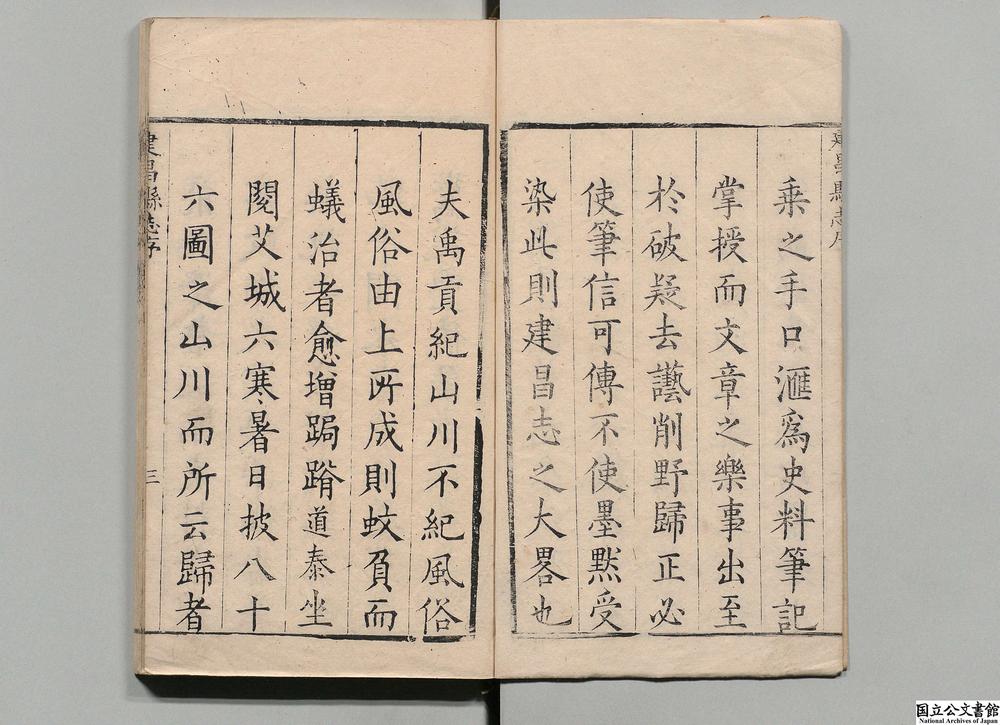 建昌縣志序
乗之手口滙爲史料筆記
掌授而文章之樂事出至
於破疑去讆削野歸正必
使筆信可傳不使墨黙受
染此則建昌志之大畧也
夫禹貢紀山川不紀風俗
風俗由上所成則蚊負而
蟻治者愈增跼蹐道泰坐
閱艾城六寒暑日披八十
六圖之山川而所云歸者
建昌縣志序
三
国立公文書館
National Archives of Japan